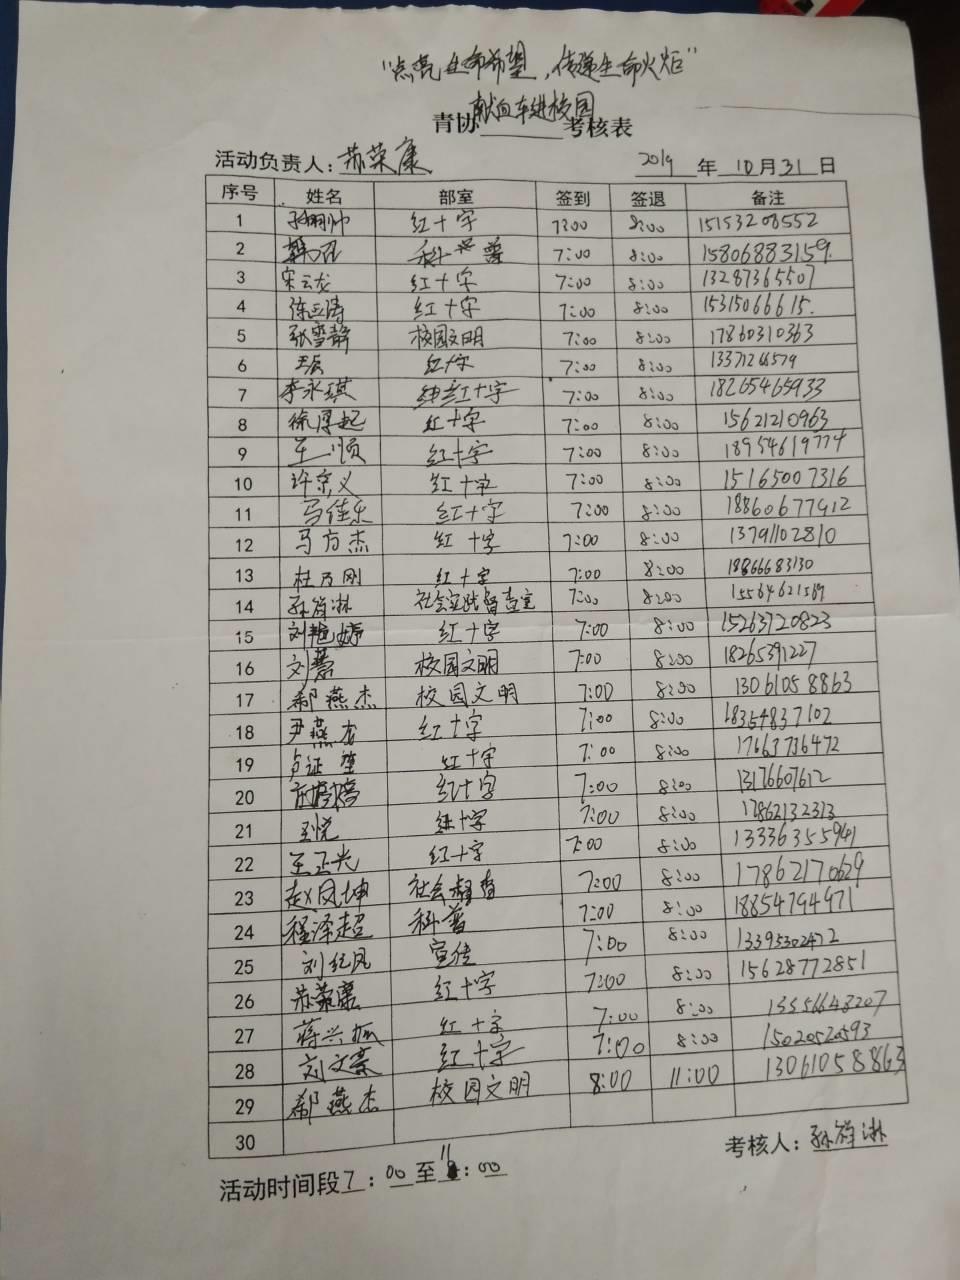 "点亮生命希望，传递生命火炬"
献血车进校园
青协 考核表
活动负责人：苏荣康 2019年10月31日
序号 姓名 部室 签到 签退 备注
1 红十字 7:00 8:00 15153208552
2 科普 7:00 8:00 15806883159
3 宋云龙 红十字 7:00 8:00 13287365507
4 陈正涛 红十字 7:00 8:00 15315066615
5 张雪静 校园文明 7:00 8:00 17860310363
6 红十字 7:00 8:00 13371266579
7 李永琪 红十字 7:00 8:00 18265465933
8 徐厚起 红十字 7:00 8:00 15621210963
9 王顺 红十字 7:00 8:00 18954619774
10 许京义 红十字 7:00 8:00 15165007316
11 马佳乐 红十字 7:00 8:00 18860677912
12 马方杰 红十字 7:00 8:00 13791102810
13 杜乃刚 红十字 7:00 8:00 18866683130
14 孙翔淋 社会实践督查室 7:00 8:00 15564621589
15 刘艳婷 红十字 7:00 8:00 15263720823
16 刘慧 校园文明 7:00 8:00 18265391227
17 郗燕杰 校园文明 7:00 8:00 13061058863
18 尹燕 红十字 7:00 8:00 18354837102
19 卢证 红十字 7:00 8:00 17663736472
20 红十字 7:00 8:00 13176607612
21 王悦 红十字 7:00 8:00 17862132313
22 王正光 红十字 7:00 8:00 13336355941
23 赵凤坤 社会督查 7:00 8:00 17862170629
24 程泽超 科普 7:00 8:00 18854794971
25 刘纪凤 宣传 7:00 8:00 13395302472
26 苏荣康 红十字 7:00 8:00 15628772851
27 蒋兴 红十字 7:00 8:00 13356648207
28 刘文豪 红十字 7:00 8:00 15020520593
29 郗燕杰 校园文明 8:00 11:00 13061058863
30
考核人：孙翔淋
活动时间段7：00至11：00